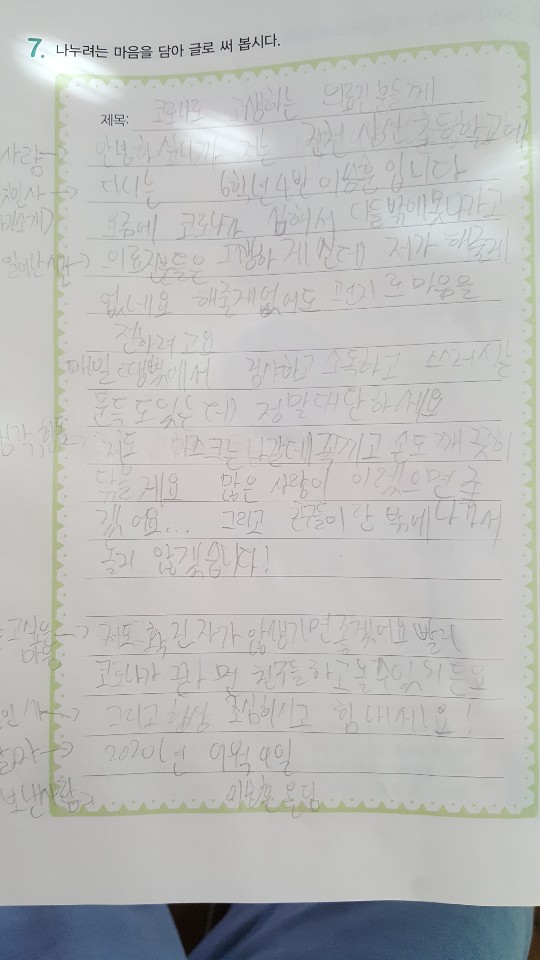 7. 나누려는 마음을 담아 글로 써 봅시다.
제목: 코로나로 고생하는 의료진분들께
사람→ 안녕하십니까 저는 진천 삼산초등학교에
첫인사→ 다니는 6학년 4반 입니다
요즘에 코로나가 심해서 다들밖에못나가고
일어난 → 의료진분들은 고생하 게신데 제가 해줄게
없네요 해줄게없어도 편지 로 마음을
전하려고요
매일 땡볕에서 검사하고 소독하고 쓰러지는
분들도있는데 정말대단하세요
생각, 행동→ 저도 마스크는 나갈때꼭끼고 손도 깨끗이
닦을게요 많은 사람이 이랬으면 좋
겠어요... 그리고 친구들이랑 밖에나가서
놀지 않겠습니다!
고싶은→ 저도 확진자가 안생기면좋겠어요빨리
마음 코로나가 끝나면 친구들하고놀수있
인사→ 그리고 항상 조심하시고 힘내세요!
날짜→ 2020년 9월 9일
보낸사람→ 올림